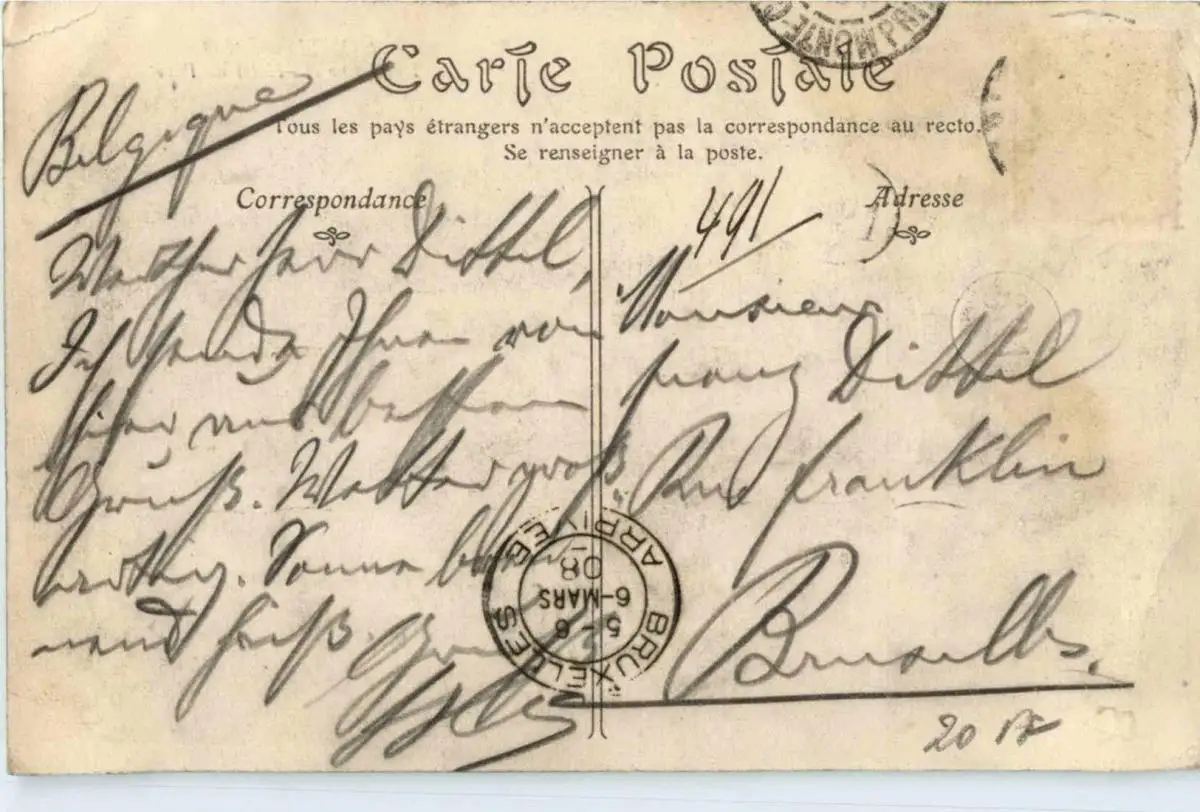 Carte Postale
Belgique
Tous les pays étrangers n'acceptent pas la correspondance au recto.
Se renseigner à la poste.
Correspondance
Werther Herr Dittel,
Ich sende Ihnen von
hier aus besten
Gruß. Wetter groß,
artig. Sonne bren
nend heiß. Gruß
Adresse
491
Monsieur
Franz Dittel
Rue Franklin
Bruxelles.
BRUXELLES ARRIVEE
5-6
6-MARS
08
MONTE-C
20